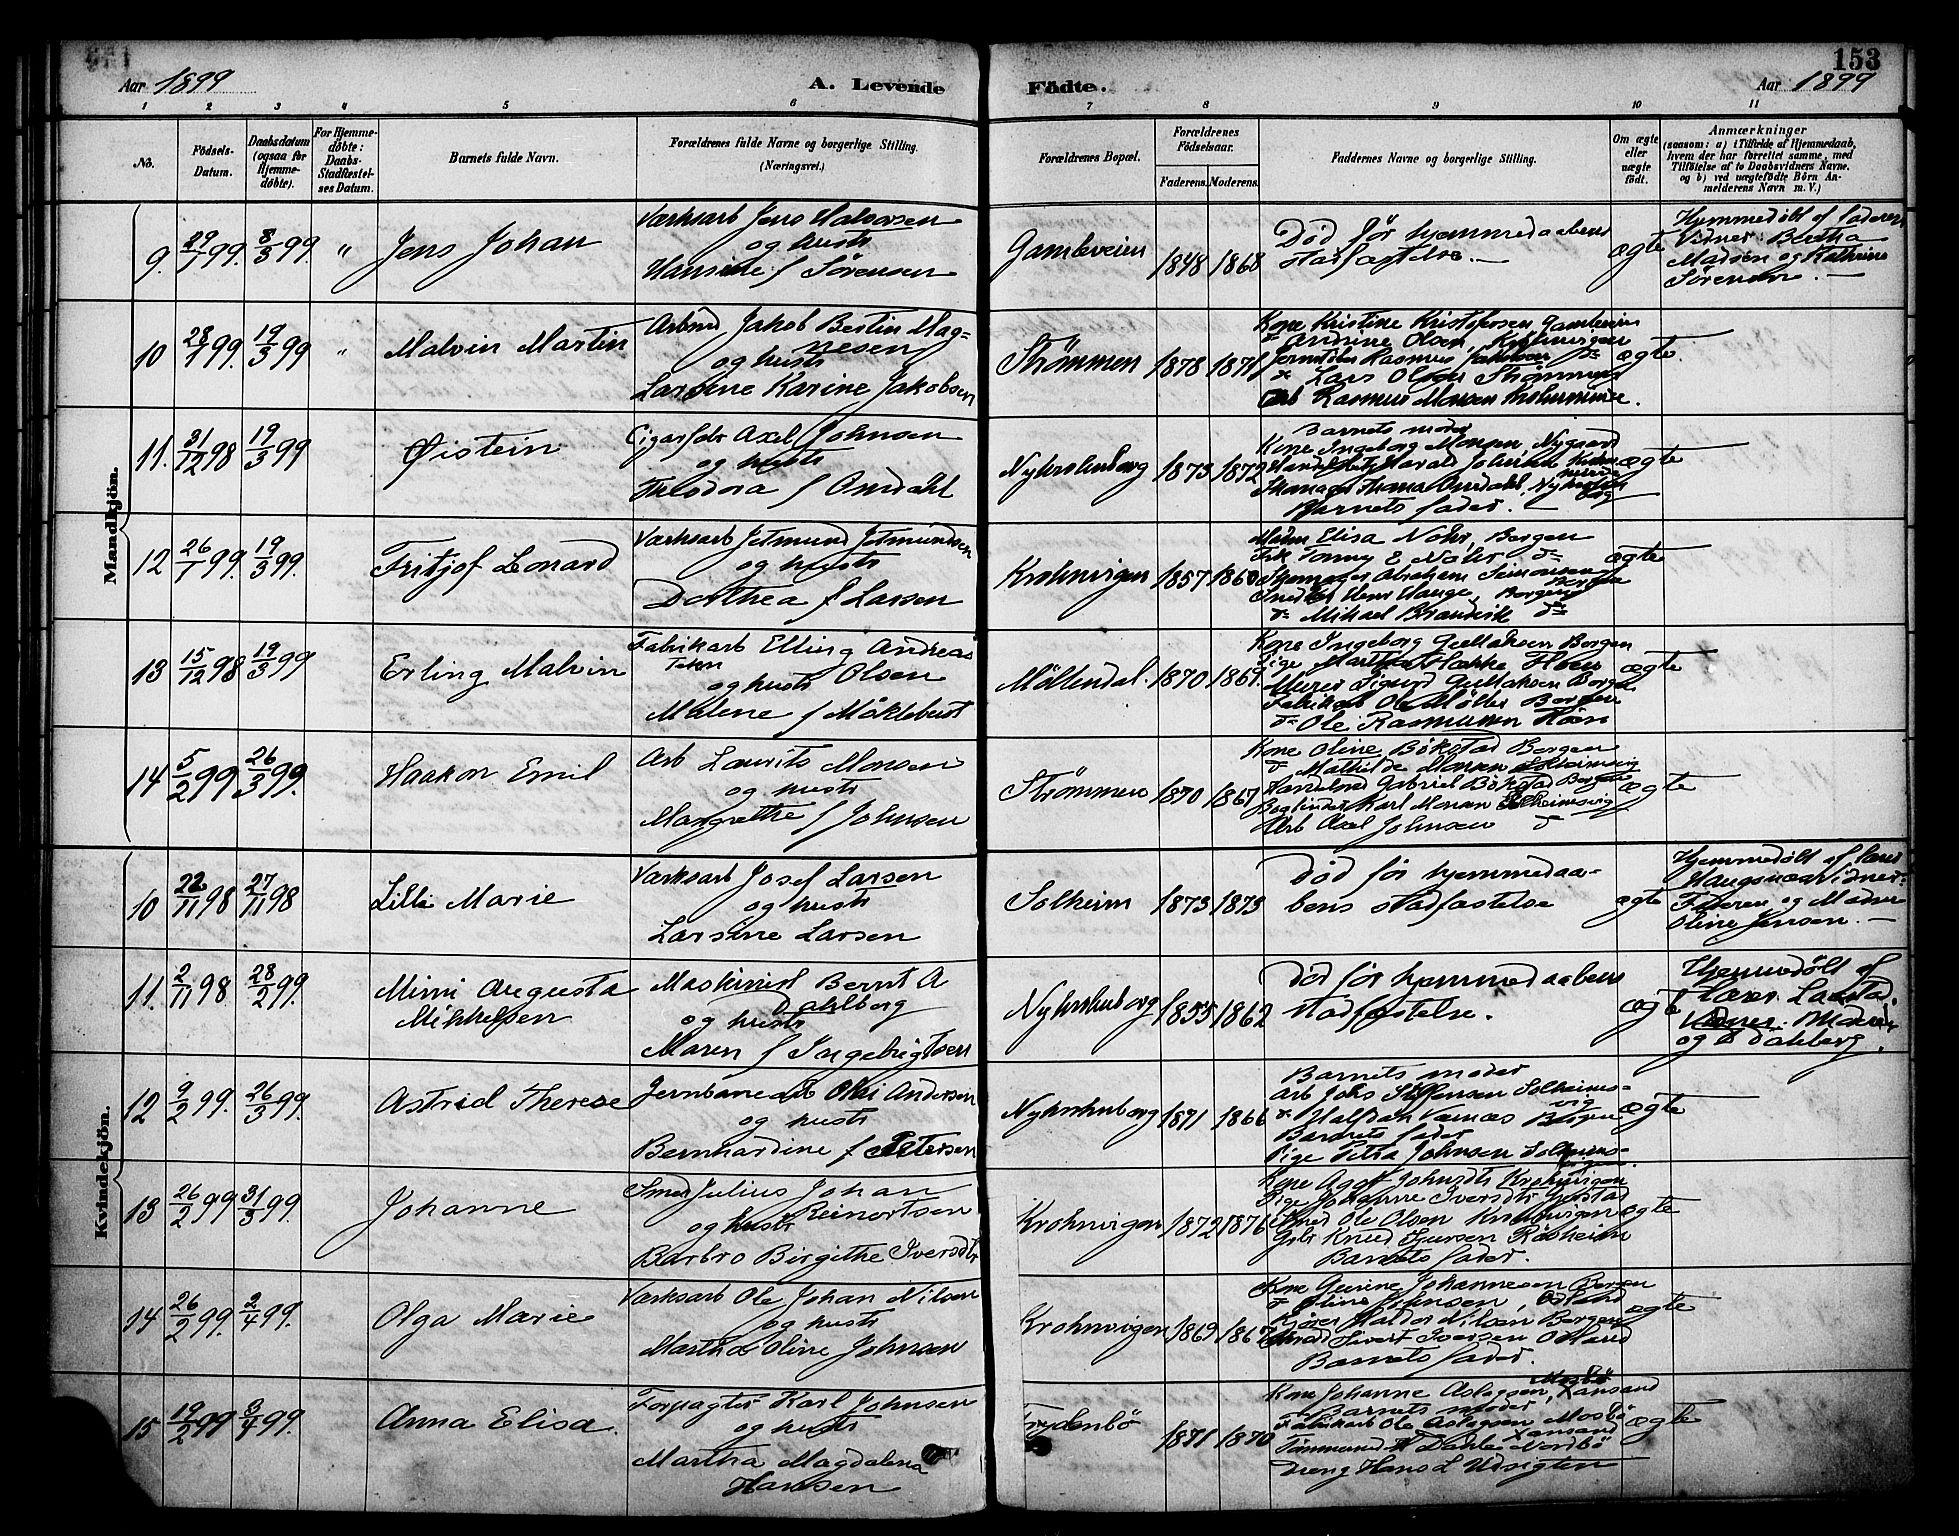 153
Aar 1899
A. Levende Födte.
Aar 1899
1 2 3 4 5 6 7 8 9 10 11
No.
Födsels-
Datum.
Daabsdatum
(ogsaa for
Hjemme-
döbte).
For Hjemme-
döbte:
Daabs-
Stadfæstel-
ses Datum.
Barnets fulde Navn.
Forældrenes fulde Navne og borgerlige Stilling.
(Næringsvei.)
Forældrenes Bopæl.
Forældrenes
Födselsaar.
Faderens. Moderens.
Faddernes Navne og borgerlige Stilling.
Om ægte
eller
uægte
födt.
Anmærkninger
(saasom: a) i Tilfælde af Hjemmedaab,
hvem der har forrettet samme, med
Tilföielse af to Daabsvidners Navne.
og b) ved uægtefödte Börn An-
melderens Navn m. V.)
Mandkjön.
9. 29/1 99. 8/3 99. " Jens Johan
Værksarb Jens Halvorsen
og hustr
Hansine f Sørensen
Gamleveien 1848 1868
Død før hjemmedaabens
stadfæstelse. —
ægte
Hjemmedøbt af faderen
Vidner: Bertha
Madsen og Kathrine
Sørensen. —
10 28/1 99. 19/3 99 " Malvin Martin
Arbmd Jakob Bertin Mag-
nesen
og hustr
Larsine Karine Jakobsen
Strømmen 1878 1871
Kone Kristine Kristofersen Gamleveien
Andrine Olsen, Krohnvigen
Rasmus Johnsen
Lars Olsen Strømmen
Arb Rasmus Monsen
ægte.
11. 31/12 98 19/3 99 Øistein
Cigarfabr Axel Johnsen
og hustr
Theodora f Omdahl
Nykrohnborg 1873 1872
Barnets moder
Kone Ingeborg Monsen, Nygaard
Harald Johnsen
Skomager Thomas Omdahl, Nykrohn
borg
Barnets fader. —
ægte
12 26/1 99. 19/3 99. Fritjof Leonard
Værksarb Jetmund Jetmundsen
og hustr
Dorthea f Larsen
Krohnvigen 1857 1860
Madm Elisa Nohr, Bergen
Frk Tonny E Nohr do
Skomager Abraham Simonsen
Bergen
Snedker Henr Hauge, Bergen
do Mikael Brandvik do
ægte
13 15/12 98 19/3 99 Erling Malvin
Fabrikarb Elling Andreas
Olsen
og hustr
Malene f Möklebust
Möllendal. 1870 1867.
Kone Ingeborg Gullaksen Bergen
Pige Martha
Murer Sigurd Gullaksen Bergen
Fabrikarb Ole Möller Bergen
do Ole Rasmussen
ægte
14 5/2 99 26/3 99. Haakon Emil
Arb Laurits Monsen
og hustr
Margrethe f Johnsen
Strømmen 1870 1867
Kone Oline Bøkstad Bergen
do Mathilde Monsen Solheimsvig
Gabriel Bøkstad Bergen
Bogbinder Karl Monsen Solheimsvig
Arb Axel Johnsen do
ægte
Kvindekjön.
10 22/11 98 27/11 98 Lilli Marie
Værksarb Josef Larsen
og hustr
Larsine Larsen
Solheim 1873 1873
Død før hjemmedaa-
bens stadfæstelse
ægte
Hjemmedøbt af lærer
Haugsnæs Vidner:
Faderen og Madm
Oline Jensen. —
11. 2/11 98 28/2 99. Mimi Augusta
Mikkelsen
Maskinist Bernt A
Dahlberg
og hustr
Maren f Ingebrigtsen
Nykrohnborg 1855 1862
Død før hjemmedaabens
stadfæstelse.
ægte
Hjemmedøbt af
Lærer
Vidner: Madm
og B Dahlberg.
12 9/2 99. 26/3 99. Astrid Therese
Jernbanearb Olai Andersen
og hustr
Bernhardine f Petersen
Nykrohnborg 1871 1866
Barnets moder
Arb Johs Steffensen Solheims-
vig
do Halfdan Bergen
Barnets fader
Pige Petra Johnsen Solheims-
ægte
13 26/2 99 31/3 99. Johanne
Smed Julius Johan
Reinertsen
og hustr
Barbro Birgithe Iversdtr
Krohnvigen 1872 1876
Kone Johnsdtr Krohnvigen
Pige Johanne Iversdtr
Smed Ole Olsen Krohnvigen
Knud Sjursen
Barnets fader.
ægte
14 26/2 99. 2/4 99. Olga Marie
Værksarb Ole Johan Nilsen
og hustr
Martha Oline Johnsen
Krohnvigen 1869 1867
Kone Gurine Johannesen Bergen
do Oline Johnsen,
Haldor Nilsen Bergen
Sivert Iversen
Barnets fader.
ægte
15 19/2 99 3/4 99. Anna Elisa.
Forpagter Karl Johnsen
og hustr
Martha Magdalena
Hansen
Frydenbö 1871 1870
Kone Johanne Aslagsen,
Barnets moder
Fabrikarb Ole Aslagsen Mosbö
Tömmermd Dahle Nordbö
Dreng Hans L Udsigten
ægte